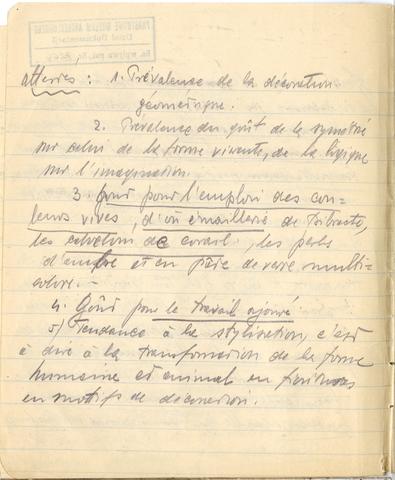 PAŃSTWOWE MUZEUM ARCHEOLOGICZNE
Dział Dokumentacji
attesties : 1. Prévalence de la décoration
géométrique.
2. Prévalence du goût de la symétrie
sur celui de la forme vivante, de la logique
sur l'imagination.
3. goût pour l'emploi des cou-
leurs vives, d'où émaillerie de
les de corail, les perles
d'ambre et en pâte de verre multi-
colore. -
4. Goût pour le travail ajouré
5) Tendance à la stylisation, c'est
à dire à la transformation de la forme
humaine et animal en
en motifs de décoration.